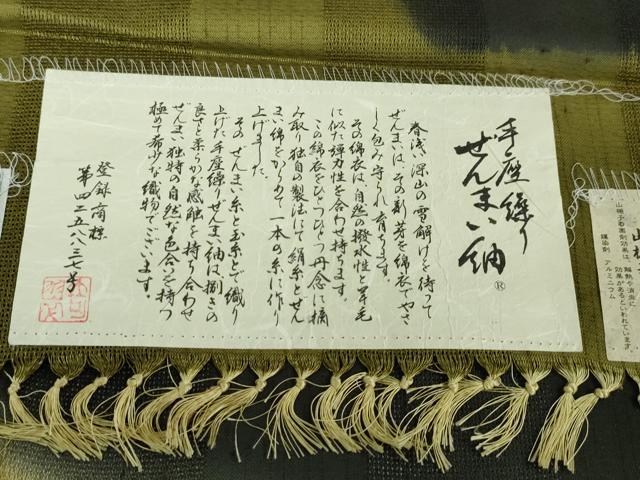 手座繰り
ぜんまい紬®
春浅い深山の雪解けを待って
ぜんまいは、その新芽を綿衣でやさ
しく包み守られ育ちます。
その綿衣は自然の撥水性と羊毛
に似た弾力性を合わせ持ちます。
この綿衣をひとつひとつ丹念に摘
み取り独自の製法にて絹糸とぜん
まい綿をからめて一本の糸に作り
上げました。
そのぜんまい糸と玉糸とで織り
上げた手座繰りぜんまい紬は捌きの
良さと柔らかな感触を持ち合わせ
ぜんまい独特の自然な色合いを持つ
極めて希少な織物でございます。
登録商標
第四二五八八三七号
山
山梔子の薬剤効果は、
解熱や消炎に
効果があるといわれています
媒染剤 アルミニウム